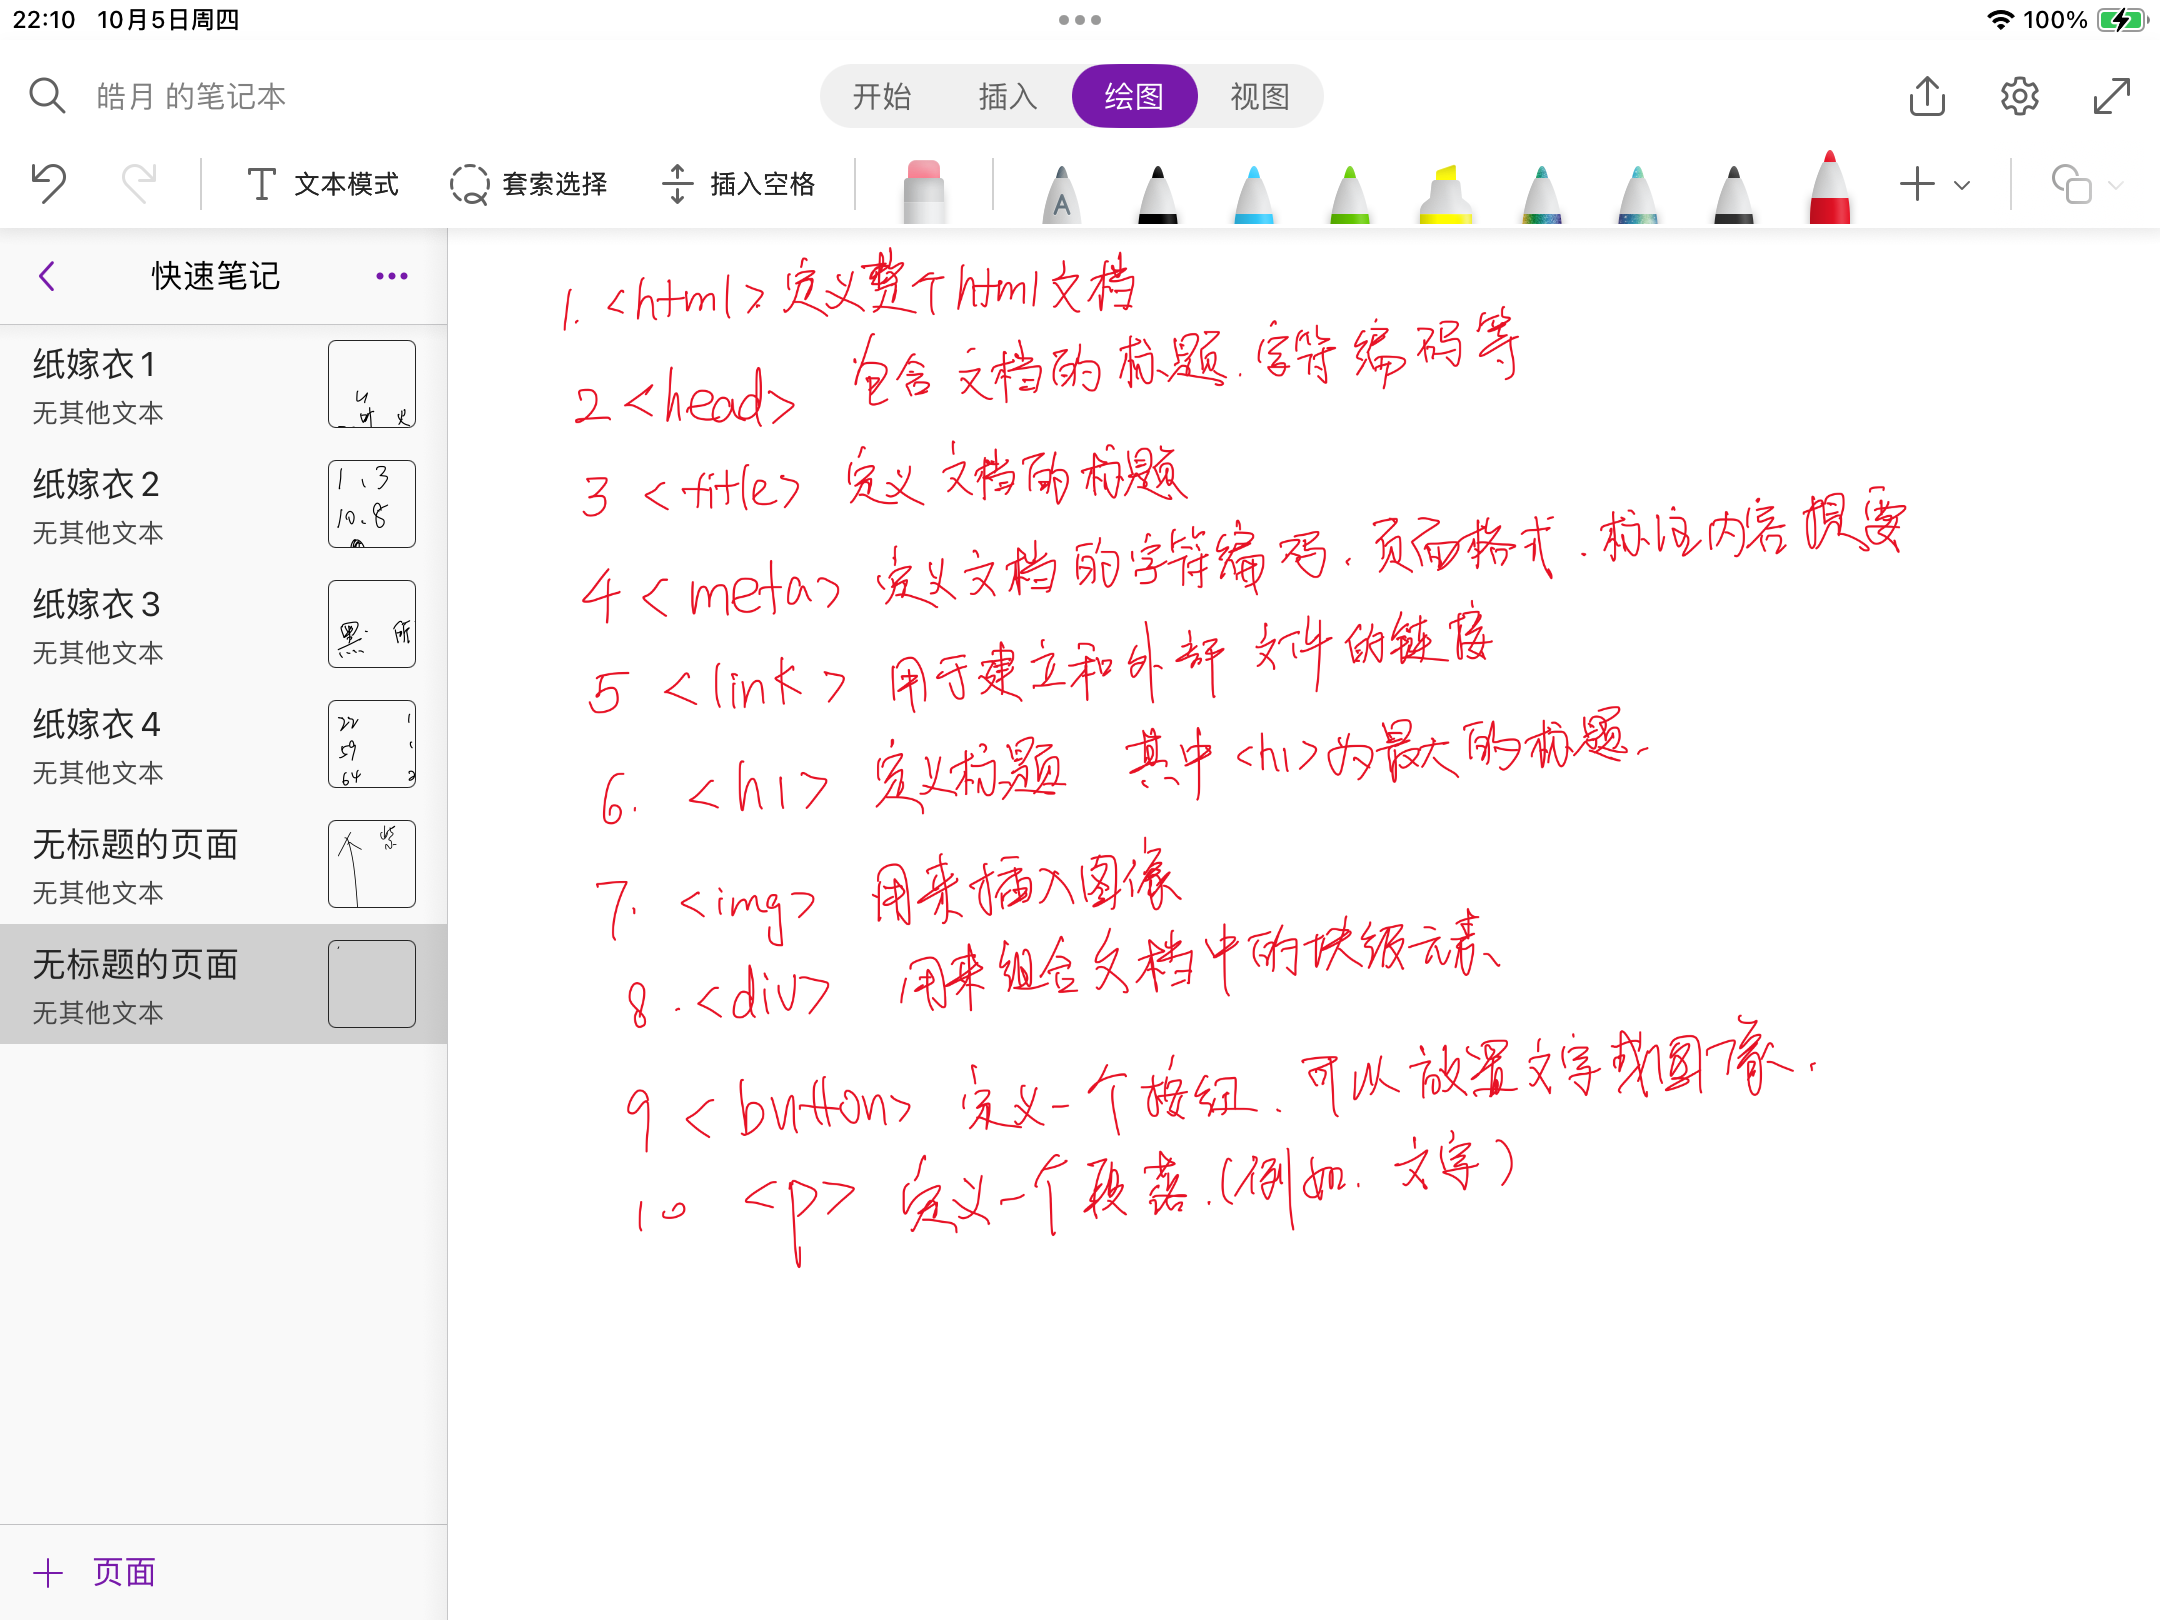 22:10 10月5日周四
100%
皓月 的笔记本
开始 插入 绘图 视图
文本模式 套索选择 插入空格
A
快速笔记
纸嫁衣1
无其他文本
纸嫁衣2
无其他文本
1、3
10.8
纸嫁衣3
无其他文本
黑 所
纸嫁衣4
无其他文本
22
59
64
无标题的页面
无其他文本
无标题的页面
无其他文本
页面
1. <html> 定义整个html文档
2 <head> 包含文档的标题.字符编码等
3 <title> 定义文档的标题
4 <meta> 定义文档的字符编码.页面格式.标注内容提要
5 <link> 用于建立和外部文件的链接
6. <h1> 定义标题 其中<h1>为最大的标题.
7. <img> 用来插入图像
8.<div> 用来组合文档中的块级元素
9 <button> 定义一个按钮.可以放置文字或图像.
10 <p> 定义一个段落.(例如.文字)